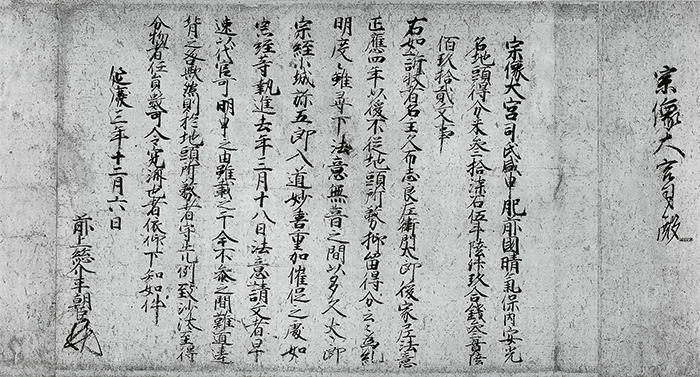 宗像大宮司殿
宗像大宮司氏盛申肥前國晴氣保内安光
名地頭得分米參拾柒石伍斗陸升玖合錢參貫陸
佰玖拾貳文事
右如訴状者名主八布志良左衛門太郎後家尼法意
正應四年以後不從地頭所務抑留得分云々為糺
明度々雖尋下法意無音之間以多久太郎
宗經小城弥五郎入道妙善重加催促之處如
宗經等執進去年三月十八日法意請文者早
速以代官可明申之由雖載之于今不參之間難遁違
背之咎歟然則於地頭所務者守先例致沙汰至得
分物者任員數可令究済也者依仰下知如件
延慶三年十二月六日
前上総介平朝臣